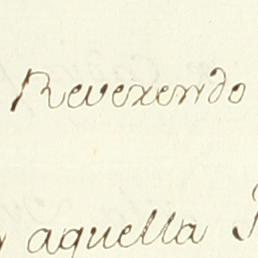 Reverendo
aquella